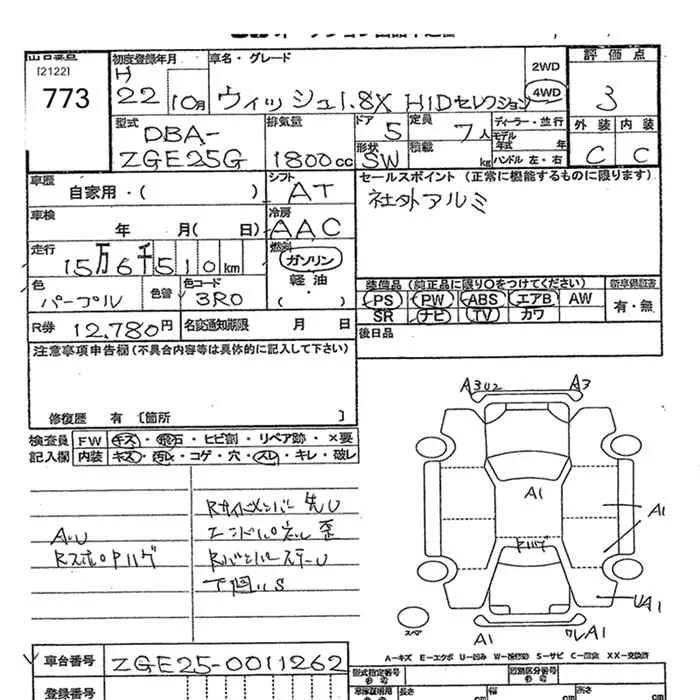 出品番号
[2122]
773
初度登録年月
H
22 10月
車名・グレード
ウィッシュ1.8X HIDセレクション
2WD
4WD
評価点
3
外装 内装
C C
型式
DBA-
ZGE25G
排気量
1800cc
ドア
5
形状
SW
定員
7人
積載
kg
ディーラー・並行
モデル年式 年
ハンドル 左・右
車歴
自家用・( )
シフト
AT
セールスポイント (正常に機能するものに限ります)
社外アルミ
車検
年 月( 日)
冷房
AAC
走行
15万6千510km
燃料
ガソリン
軽油
・
( )
色
パープル
色替
色コード
3R0
装備品 (純正品に限り○をつけてください)
新車保証書
PS PW ABS エアB AW
有・無
SR ナビ TV カワ
R券 12,780円
名変通知期限 月 日
後日品
注意事項申告欄 (不具合内容等は具体的に記入して下さい)
修復歴 有 [箇所 ]
検査員 FW キズ・飛石・ヒビ割・リペア跡・×要
記入欄 内装 キズ・汚れ・コゲ・穴・スレ・キレ・破レ
Rサイドメンバー先U
エンドパネル歪
A・U
RスポイロPハゲ
Rバンパーステーレ
下廻りS
A3U2
A3
A1
A1
Pハゲ
UA1
スペア
A1
ワレA1
A-キズ E-エクボ U-凹み W-補修跡 S-サビ C-腐食 XX-交換済
車台番号
ZGE25-0011262
登録番号
型式指定番号
参考
類別区分番号
参考
長さ
cm
幅
cm
高さ
cm